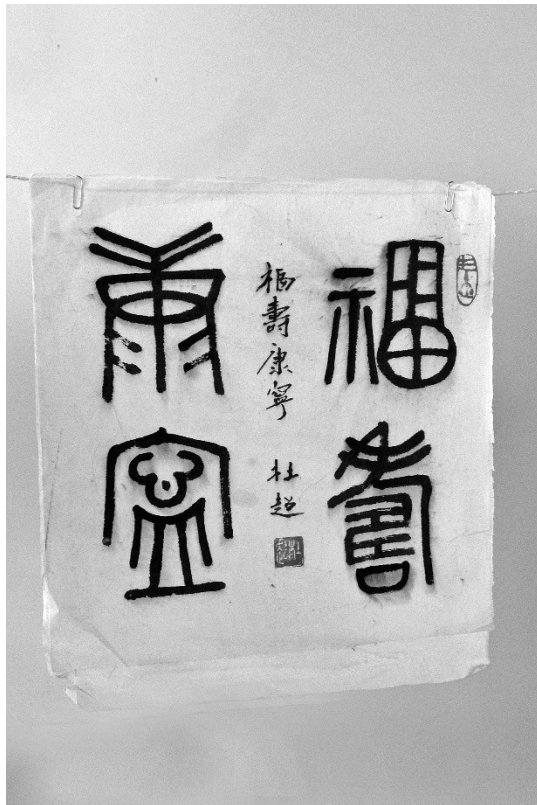 福壽
康寧
福壽康寧
杜超